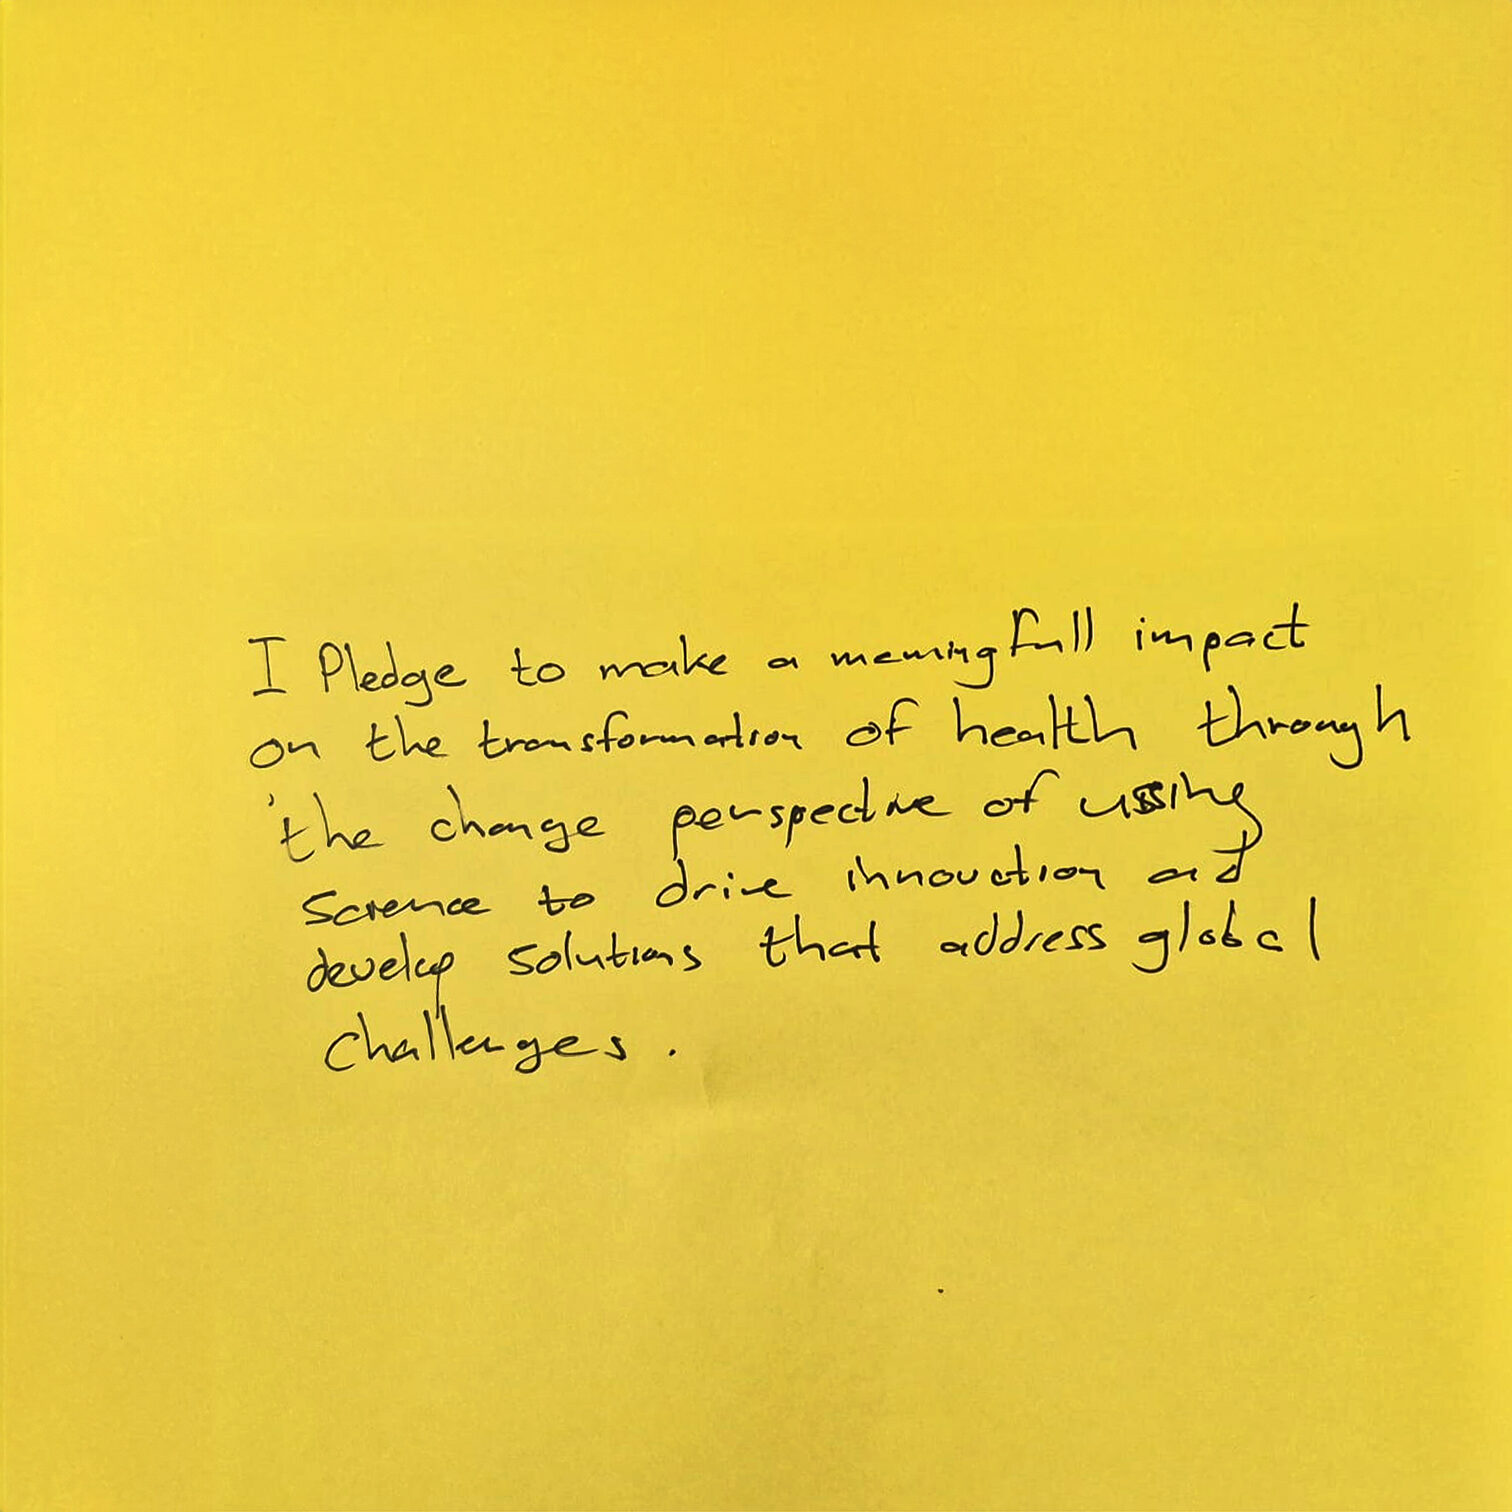 I Pledge to make a meaningfull impact
on the transformation of health through
the change perspective of ussing
Science to drive innovation and
develop solutions that address global
Challenges.